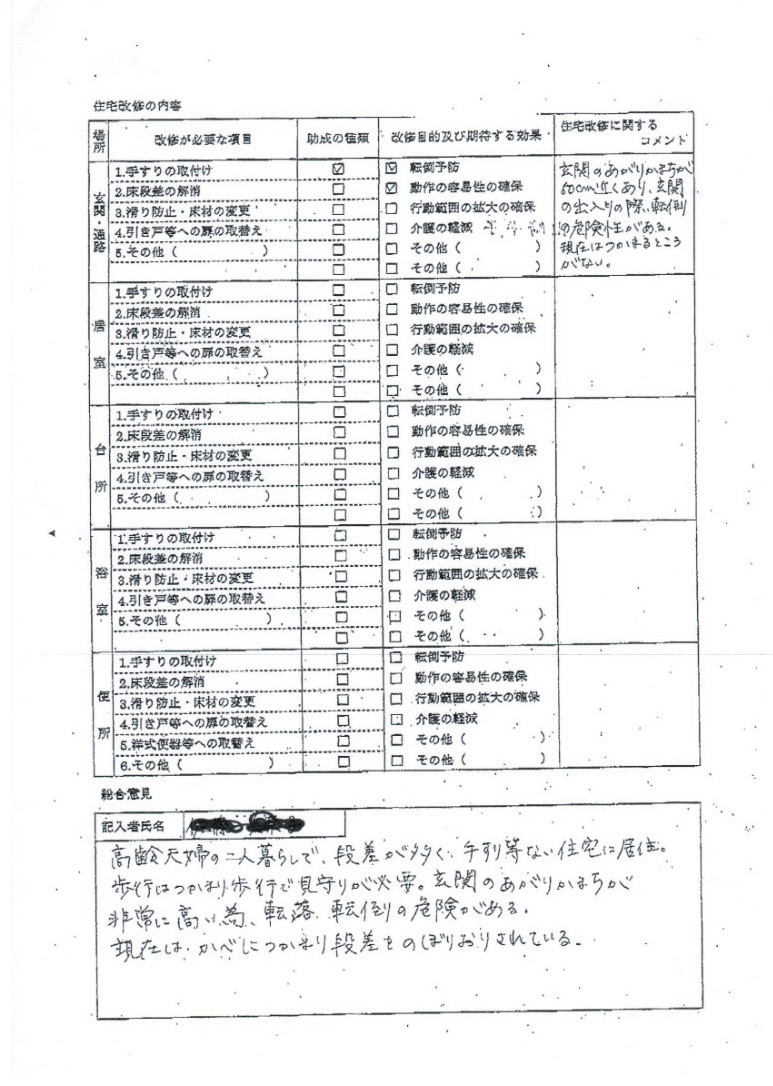 住宅改修の内容
場所 改修が必要な項目 助成の種類 改修目的及び期待する効果 住宅改修に関するコメント
玄関・通路
1.手すりの取付け ☑ ☑ 転倒予防
2.床段差の解消 □ ☑ 動作の容易性の確保
3.滑り防止・床材の変更 □ □ 行動範囲の拡大の確保
4.引き戸等への扉の取替え □ □ 介護の軽減
5.その他 ( ) □ □ その他 ( )
□ □ その他 ( )
玄関のあがりかまちが
50cm近くあり、玄関
の出入りの際、転倒
の危険性がある。
現在はつかまるところ
がない。
居室
1.手すりの取付け □ □ 転倒予防
2.床段差の解消 □ □ 動作の容易性の確保
3.滑り防止・床材の変更 □ □ 行動範囲の拡大の確保
4.引き戸等への扉の取替え □ □ 介護の軽減
5.その他 ( ) □ □ その他 ( )
□ □ その他 ( )
台所
1.手すりの取付け □ □ 転倒予防
2.床段差の解消 □ □ 動作の容易性の確保
3.滑り防止・床材の変更 □ □ 行動範囲の拡大の確保
4.引き戸等への扉の取替え □ □ 介護の軽減
5.その他 ( ) □ □ その他 ( )
□ □ その他 ( )
浴室
1.手すりの取付け □ □ 転倒予防
2.床段差の解消 □ □ 動作の容易性の確保
3.滑り防止・床材の変更 □ □ 行動範囲の拡大の確保
4.引き戸等への扉の取替え □ □ 介護の軽減
5.その他 ( ) □ □ その他 ( )
□ □ その他 ( )
便所
1.手すりの取付け □ □ 転倒予防
2.床段差の解消 □ □ 動作の容易性の確保
3.滑り防止・床材の変更 □ □ 行動範囲の拡大の確保
4.引き戸等への扉の取替え □ □ 介護の軽減
5.洋式便器等への取替え □ □ その他 ( )
6.その他 ( ) □ □ その他 ( )
総合意見
記入者氏名
高齢夫婦の二人暮らしで、段差が多く、手すり等ない住宅に居住。
歩行はつかまり歩行で見守りが必要。玄関のあがりかまちが
非常に高い為、転落、転倒の危険がある。
現在は、かべにつかまり段差をのぼりおりされている。